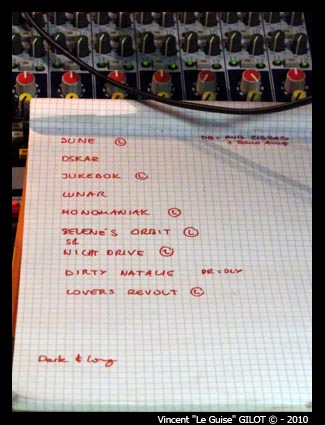 JUNE Ⓛ
OSKAR
JUKEBOX Ⓛ
LUNAR
MONOMANIAK Ⓛ
SELENE'S ORBIT Ⓛ
NIGHT DRIVE Ⓛ
DIRTY NATALIE DR=DLY
LOVERS REVOLT Ⓛ
Dark & Long
Vincent "Le Guise" GILOT © - 2010